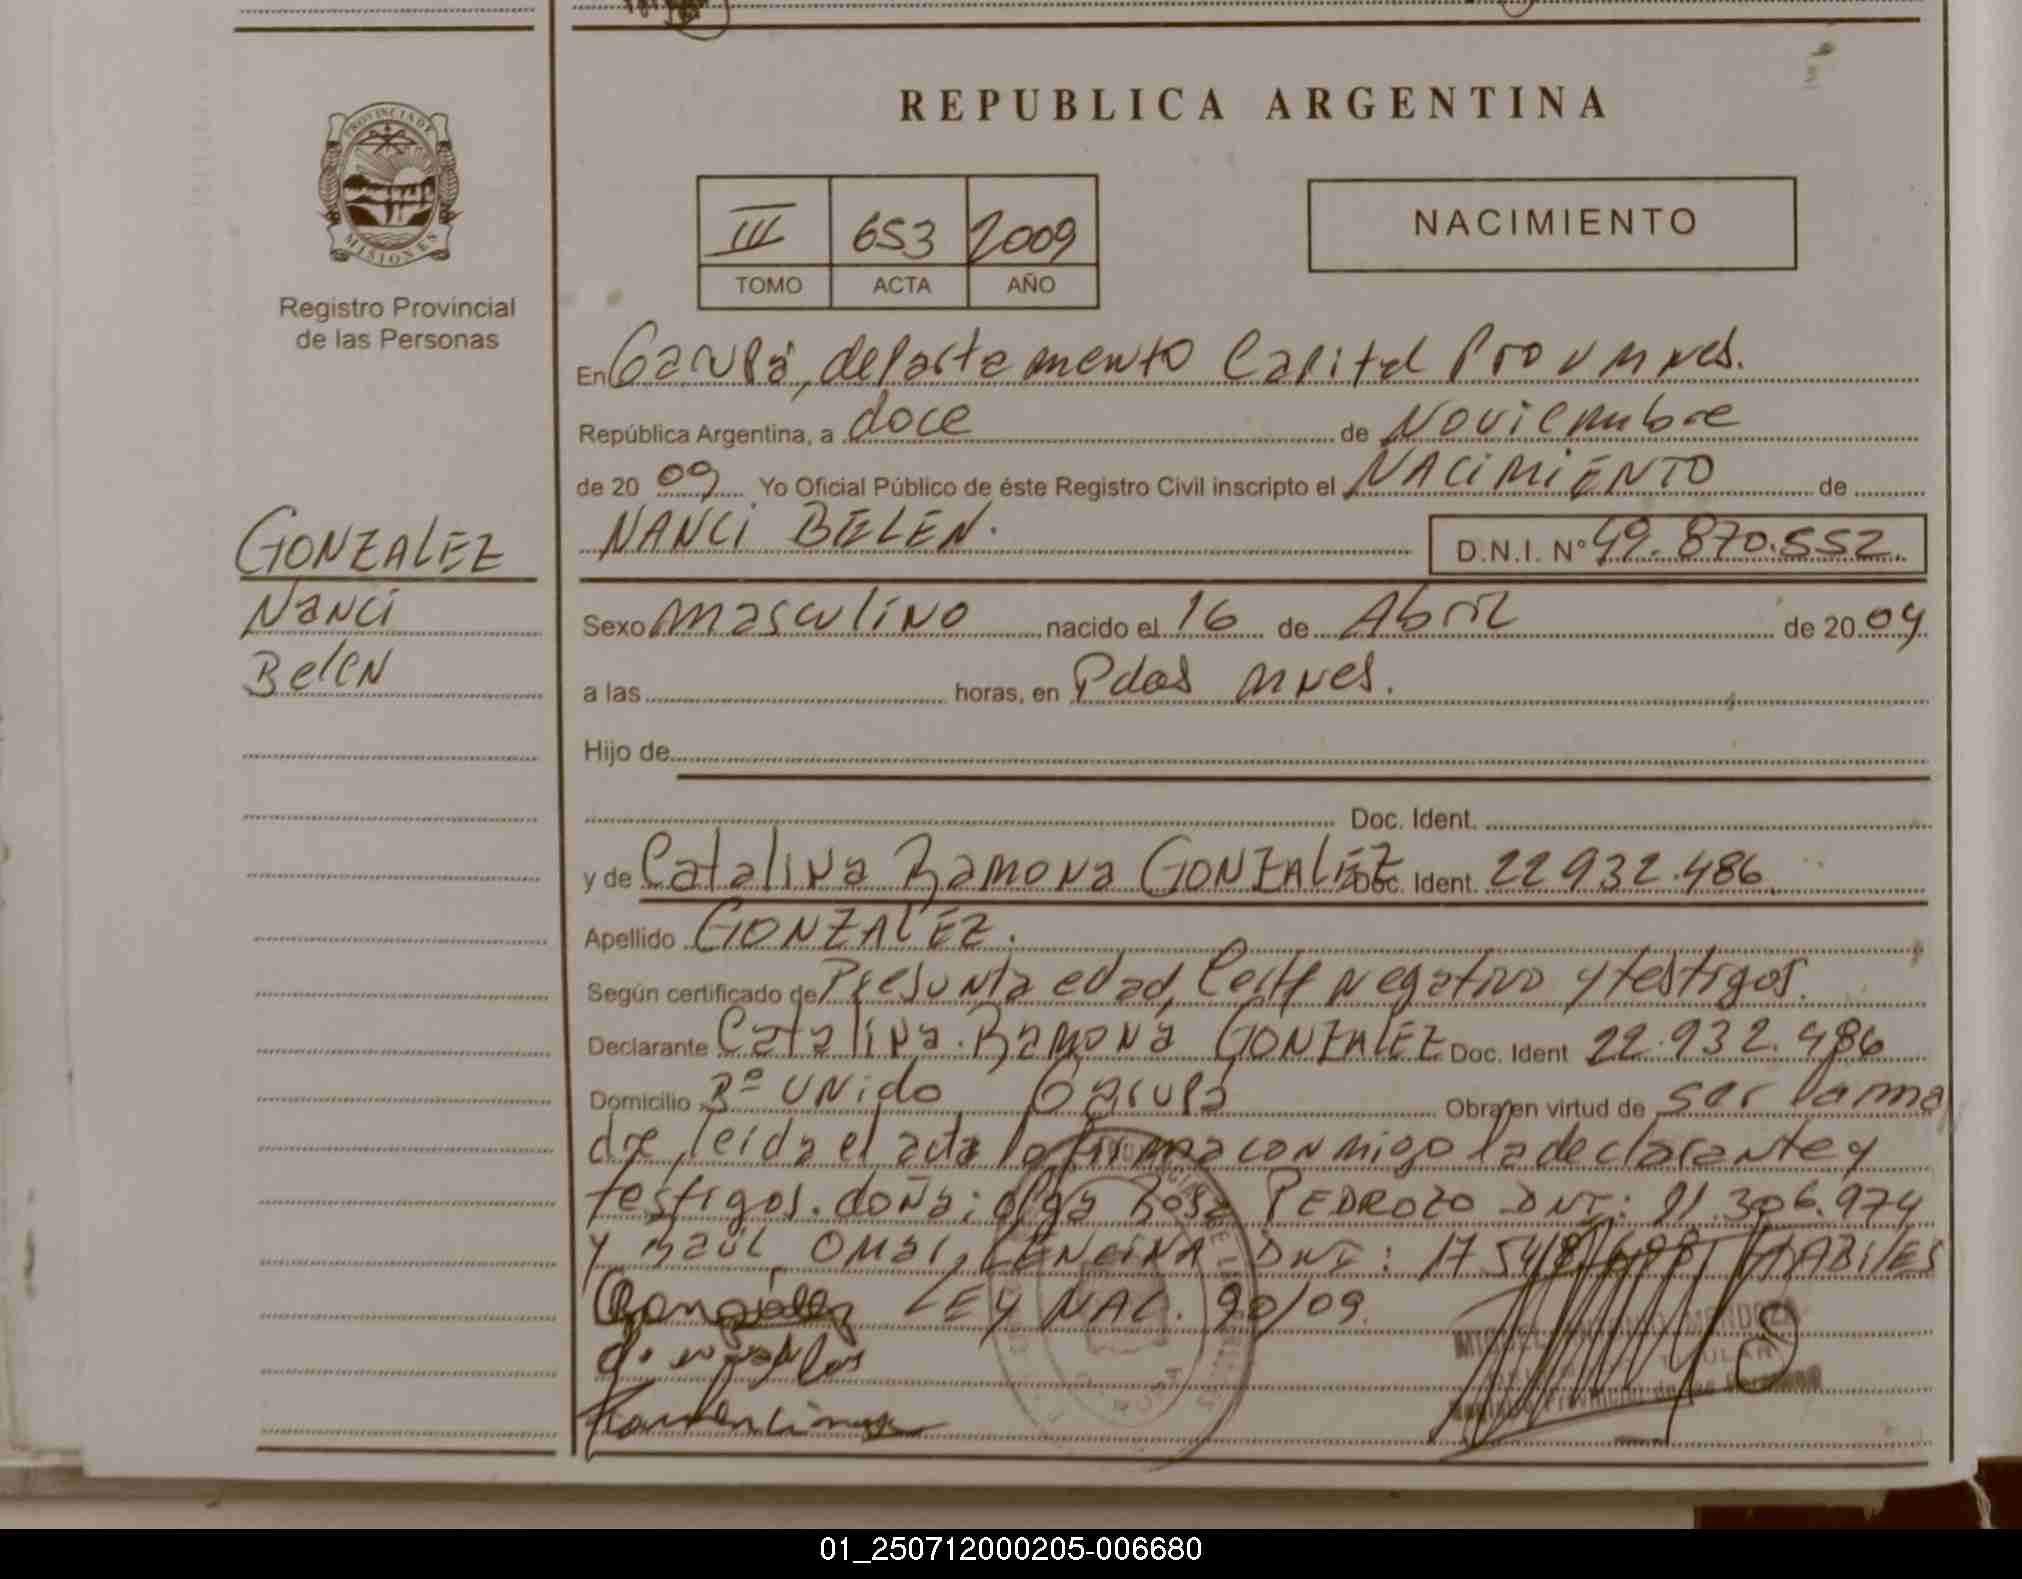 REPUBLICA ARGENTINA
PROVINCIA DE
MISIONES
Registro Provincial
de las Personas
III 653 2009
TOMO ACTA AÑO
NACIMIENTO
En Garupá, departamento Capital Prov Mnes.
República Argentina, a doce de Noviembre
de 20 09 Yo Oficial Público de éste Registro Civil inscripto el NACIMIENTO de
NANCI BELEN. D.N.I. N° 49.870.552.
GONZALEZ
Nanci
Belen
Sexo masculino nacido el 16 de Abril de 20 09
a las horas, en Pdas Mnes.
Hijo de
Doc. Ident.
y de Catalina Ramona GONZALEZ Doc. Ident. 22 932.486.
Apellido GONZALEZ.
Según certificado de Presunta edad, Certf negativo y testigos.
Declarante Catalina Ramona GONZALEZ Doc. Ident 22.932.486
Domicilio Bº UNido Garupá Obra en virtud de ser la ma
dre, leída el acta la firma conmigo la declarante y
testigos. doña: olga Rosa PEDROZO DNI: 21.306.974
y Raúl Omar, LENCINA DNI: 17 548.698 HABILES
González LEY NAC. 90/09.
MIGUEL MENDOZA
TITULAR
Provincial de las Personas
01_250712000205-006680